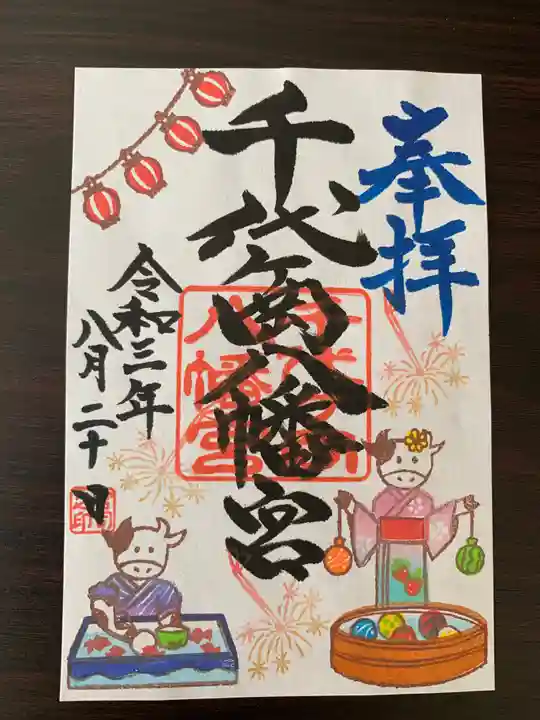 奉拝
千代ヶ岡八幡宮
令和三年
八月二十日